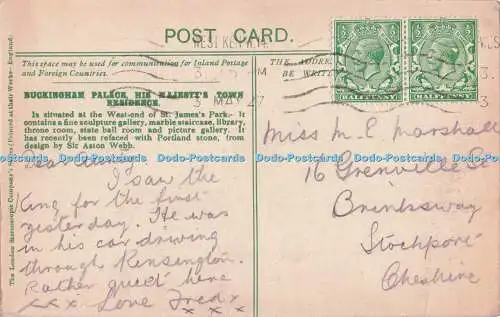 POST CARD.
WEST KEN. W.14.
This space may be used for communication for Inland Postage
and Foreign Countries.
3 MAY 27
BUCKINGHAM PALACE, HIS MAJESTY'S TOWN
RESIDENCE.
Is situated at the West-end of St. James's Park. It
contains a fine sculpture gallery, marble staircase, library,
throne room, state ball room and picture gallery. It
has recently been refaced with Portland stone, from
design by Sir Aston Webb.
Dear
I saw the
King for the first
yesterday. He was
in his car driving
through Kensington.
Rather quiet here
x x x Love Fred x
x x x
The London Stereoscopic Company's Series (Printed at their Works—England)
THE ADDRE
BE WRIT
HALFPENNY
HALFPENNY
Miss M. E. Marshall
16 Grenville St
Brinksway
Stockport
Cheshire
Dodo-Postcards Dodo-Postcards Dodo-Postcards Dodo-Postcards Dodo-Postcards Dodo-Postcards